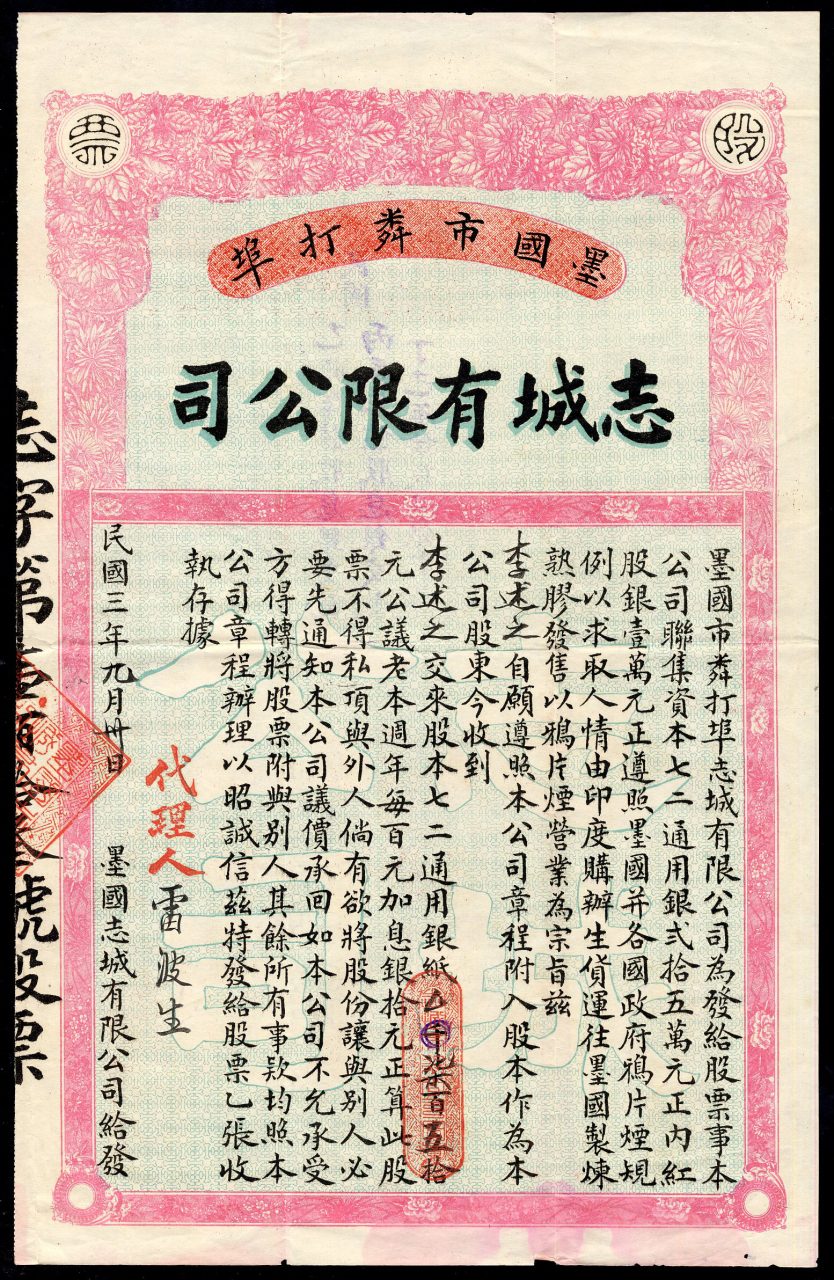 股票
墨國市粦打埠
志城有限公司
墨國市粦打埠志城有限公司為發給股票事本
公司聯集資本七二通用銀弍拾五萬元正內紅
股銀壹萬元正遵照墨國并各國政府鴉片煙規
例以求取人情由印度購辦生貨運往墨國製煉
熟膠發售以鴉片煙營業為宗旨茲
李述之自願遵照本公司章程附入股本作為本
公司股東今收到
李述之交來股本七二通用銀紙△千柒百五拾
元公議老本週年每百元加息銀拾元正算此股
票不得私頂與外人倘有欲將股份讓與別人必
要先通知本公司議價承回如本公司不允承受
方得轉將股票附與別人其餘所有事欵均照本
公司章程辦理以昭誠信茲特發給股票乙張收
執存據
代理人雷波生
民國三年九月卅日 墨國志城有限公司給發
志字第壹百拾叁號股票